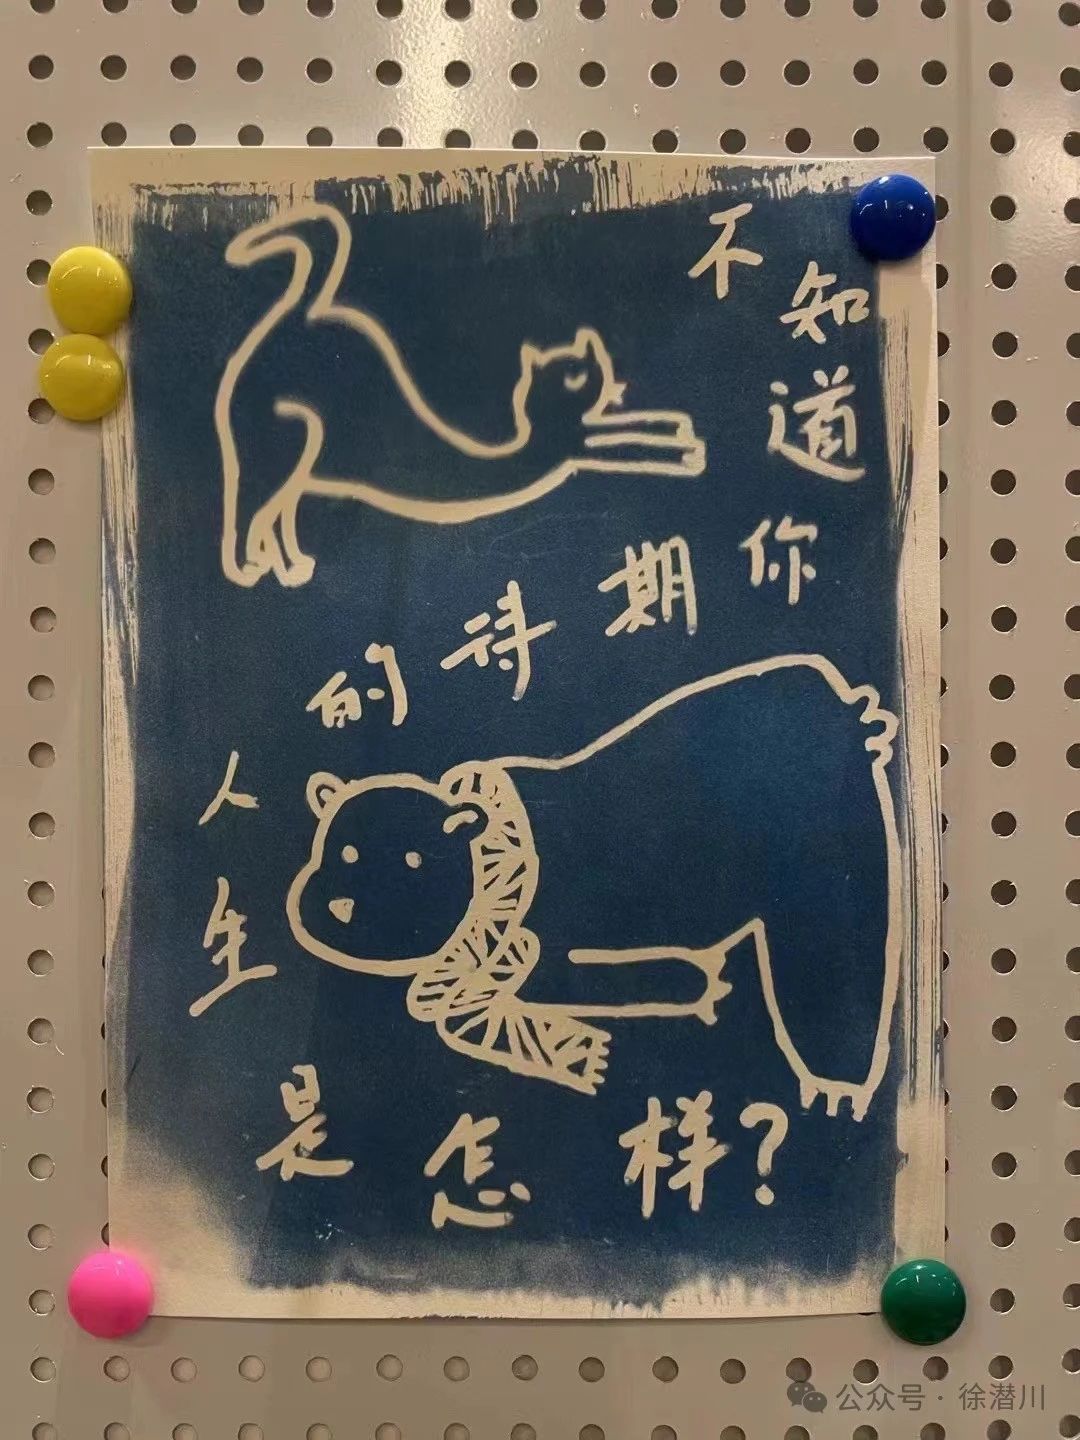 不知道你期待的人生是怎样？
公众号·徐潜川